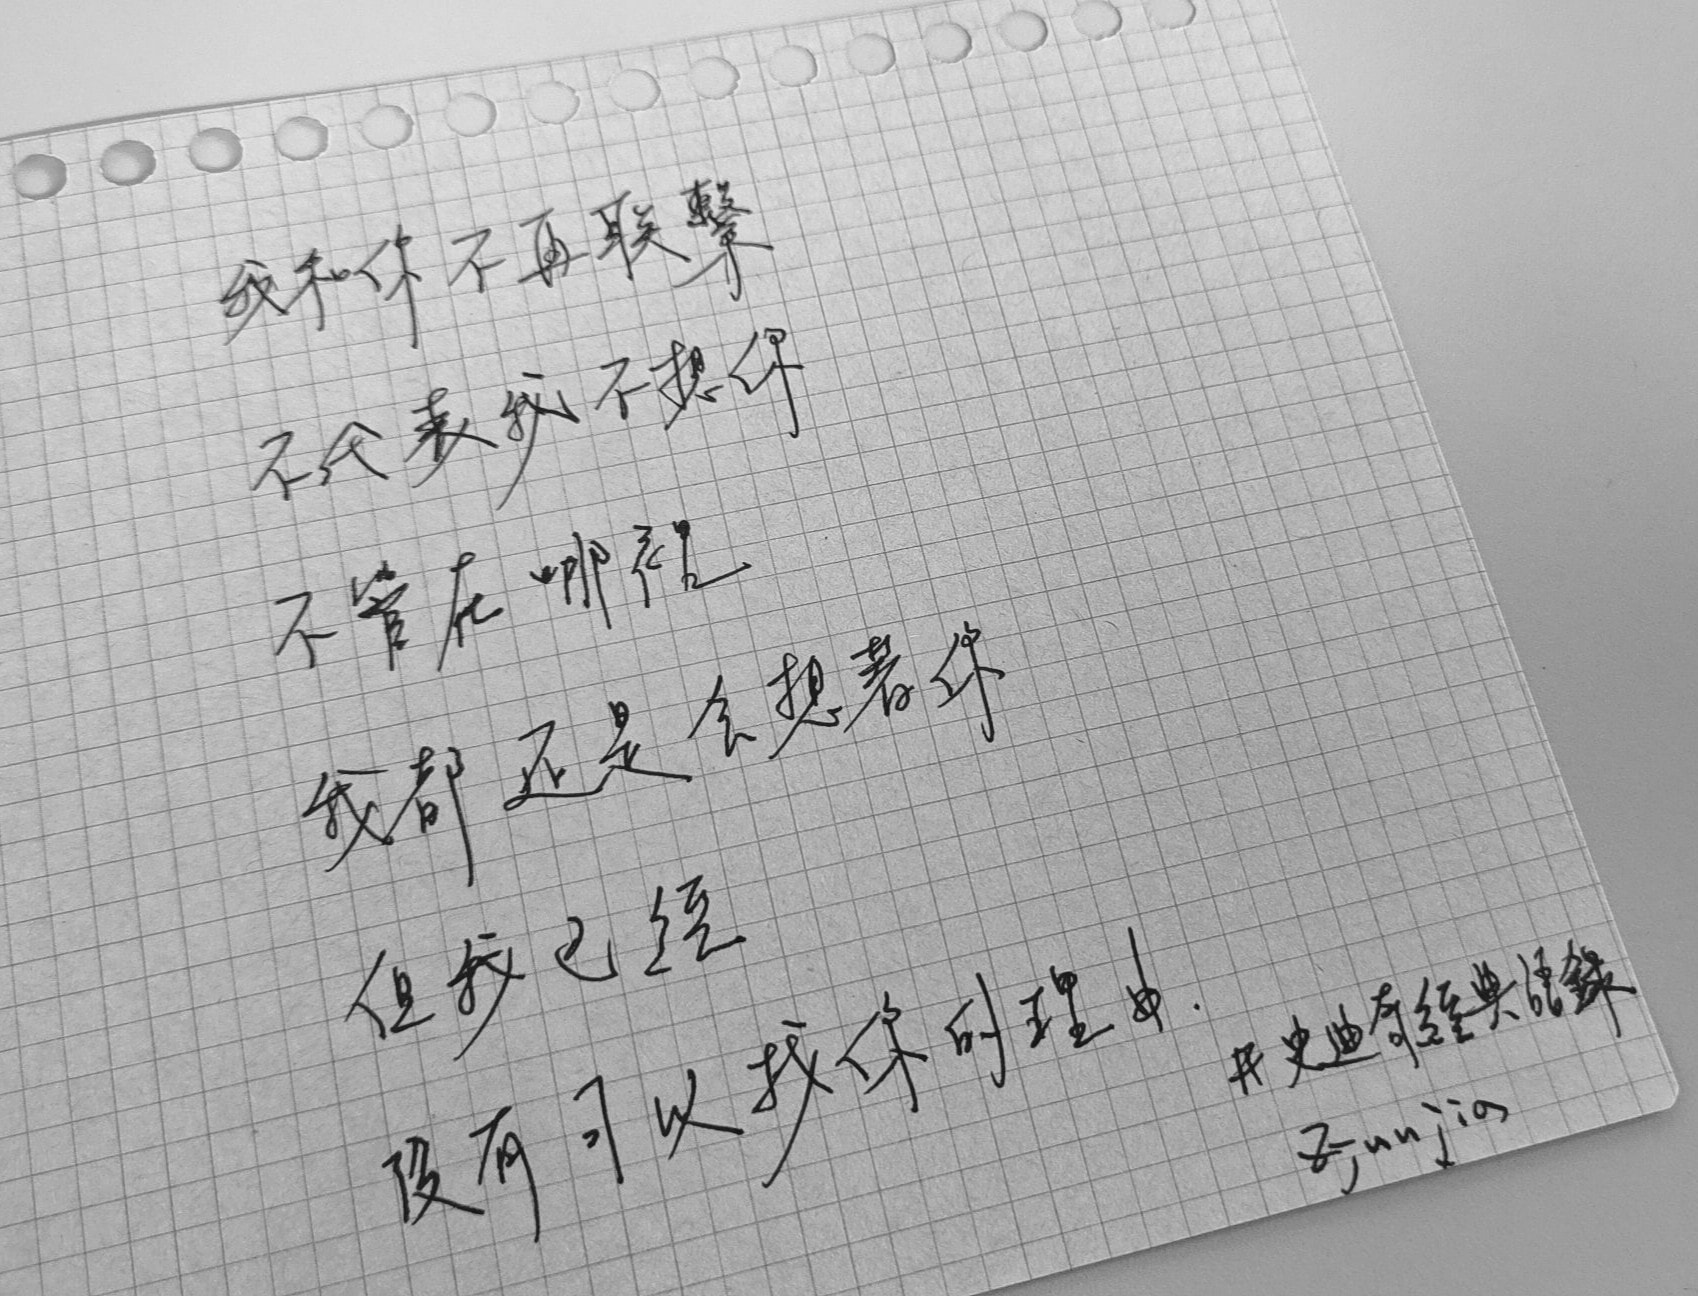 我和你不再联繫
不代表我不想你
不管在哪裡
我都还是会想著你
但我已經
沒有可以找你的理由.
#史迪奇經典語錄
Zjunjia